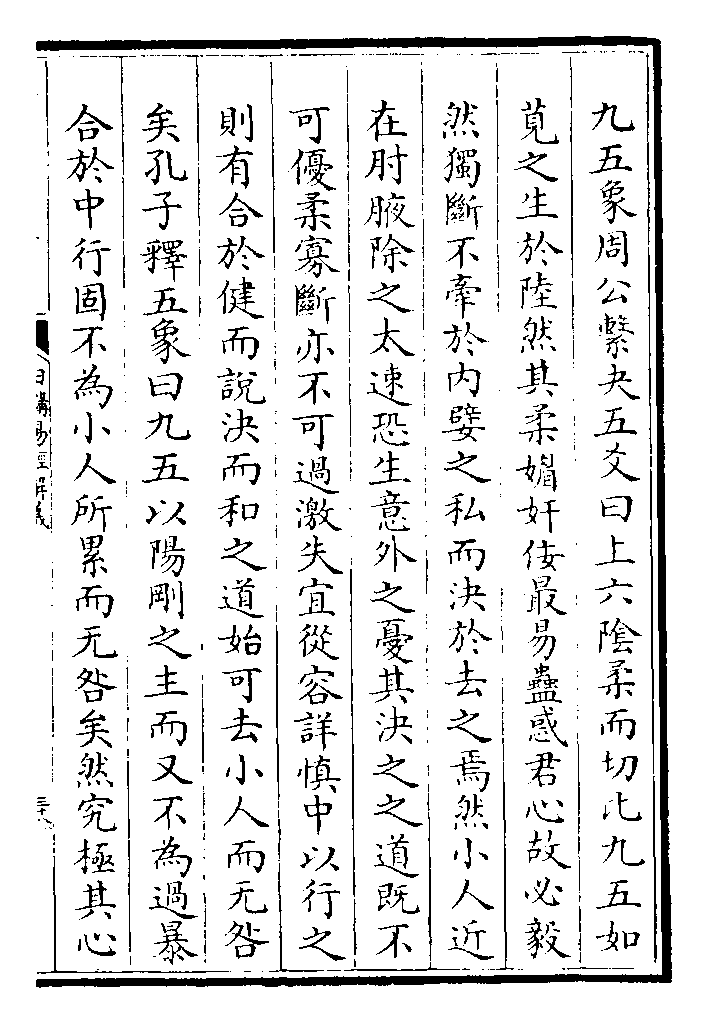 九五象周公繫夬五爻曰上六陰柔而切比九五如
莧之生於陸然其柔媚奸佞最易蠱惑君心故必毅
然獨斷不牽於內嬖之私而決於去之焉然小人近
在肘腋除之太速恐生意外之憂其決之之道既不
可優柔寡斷亦不可過激失宜從容詳慎中以行之
則有合於健而說決而和之道始可去小人而无咎
矣孔子釋五象曰九五以陽剛之主而又不為過暴
合於中行固不為小人所累而无咎矣然究極其心
日講易經解義